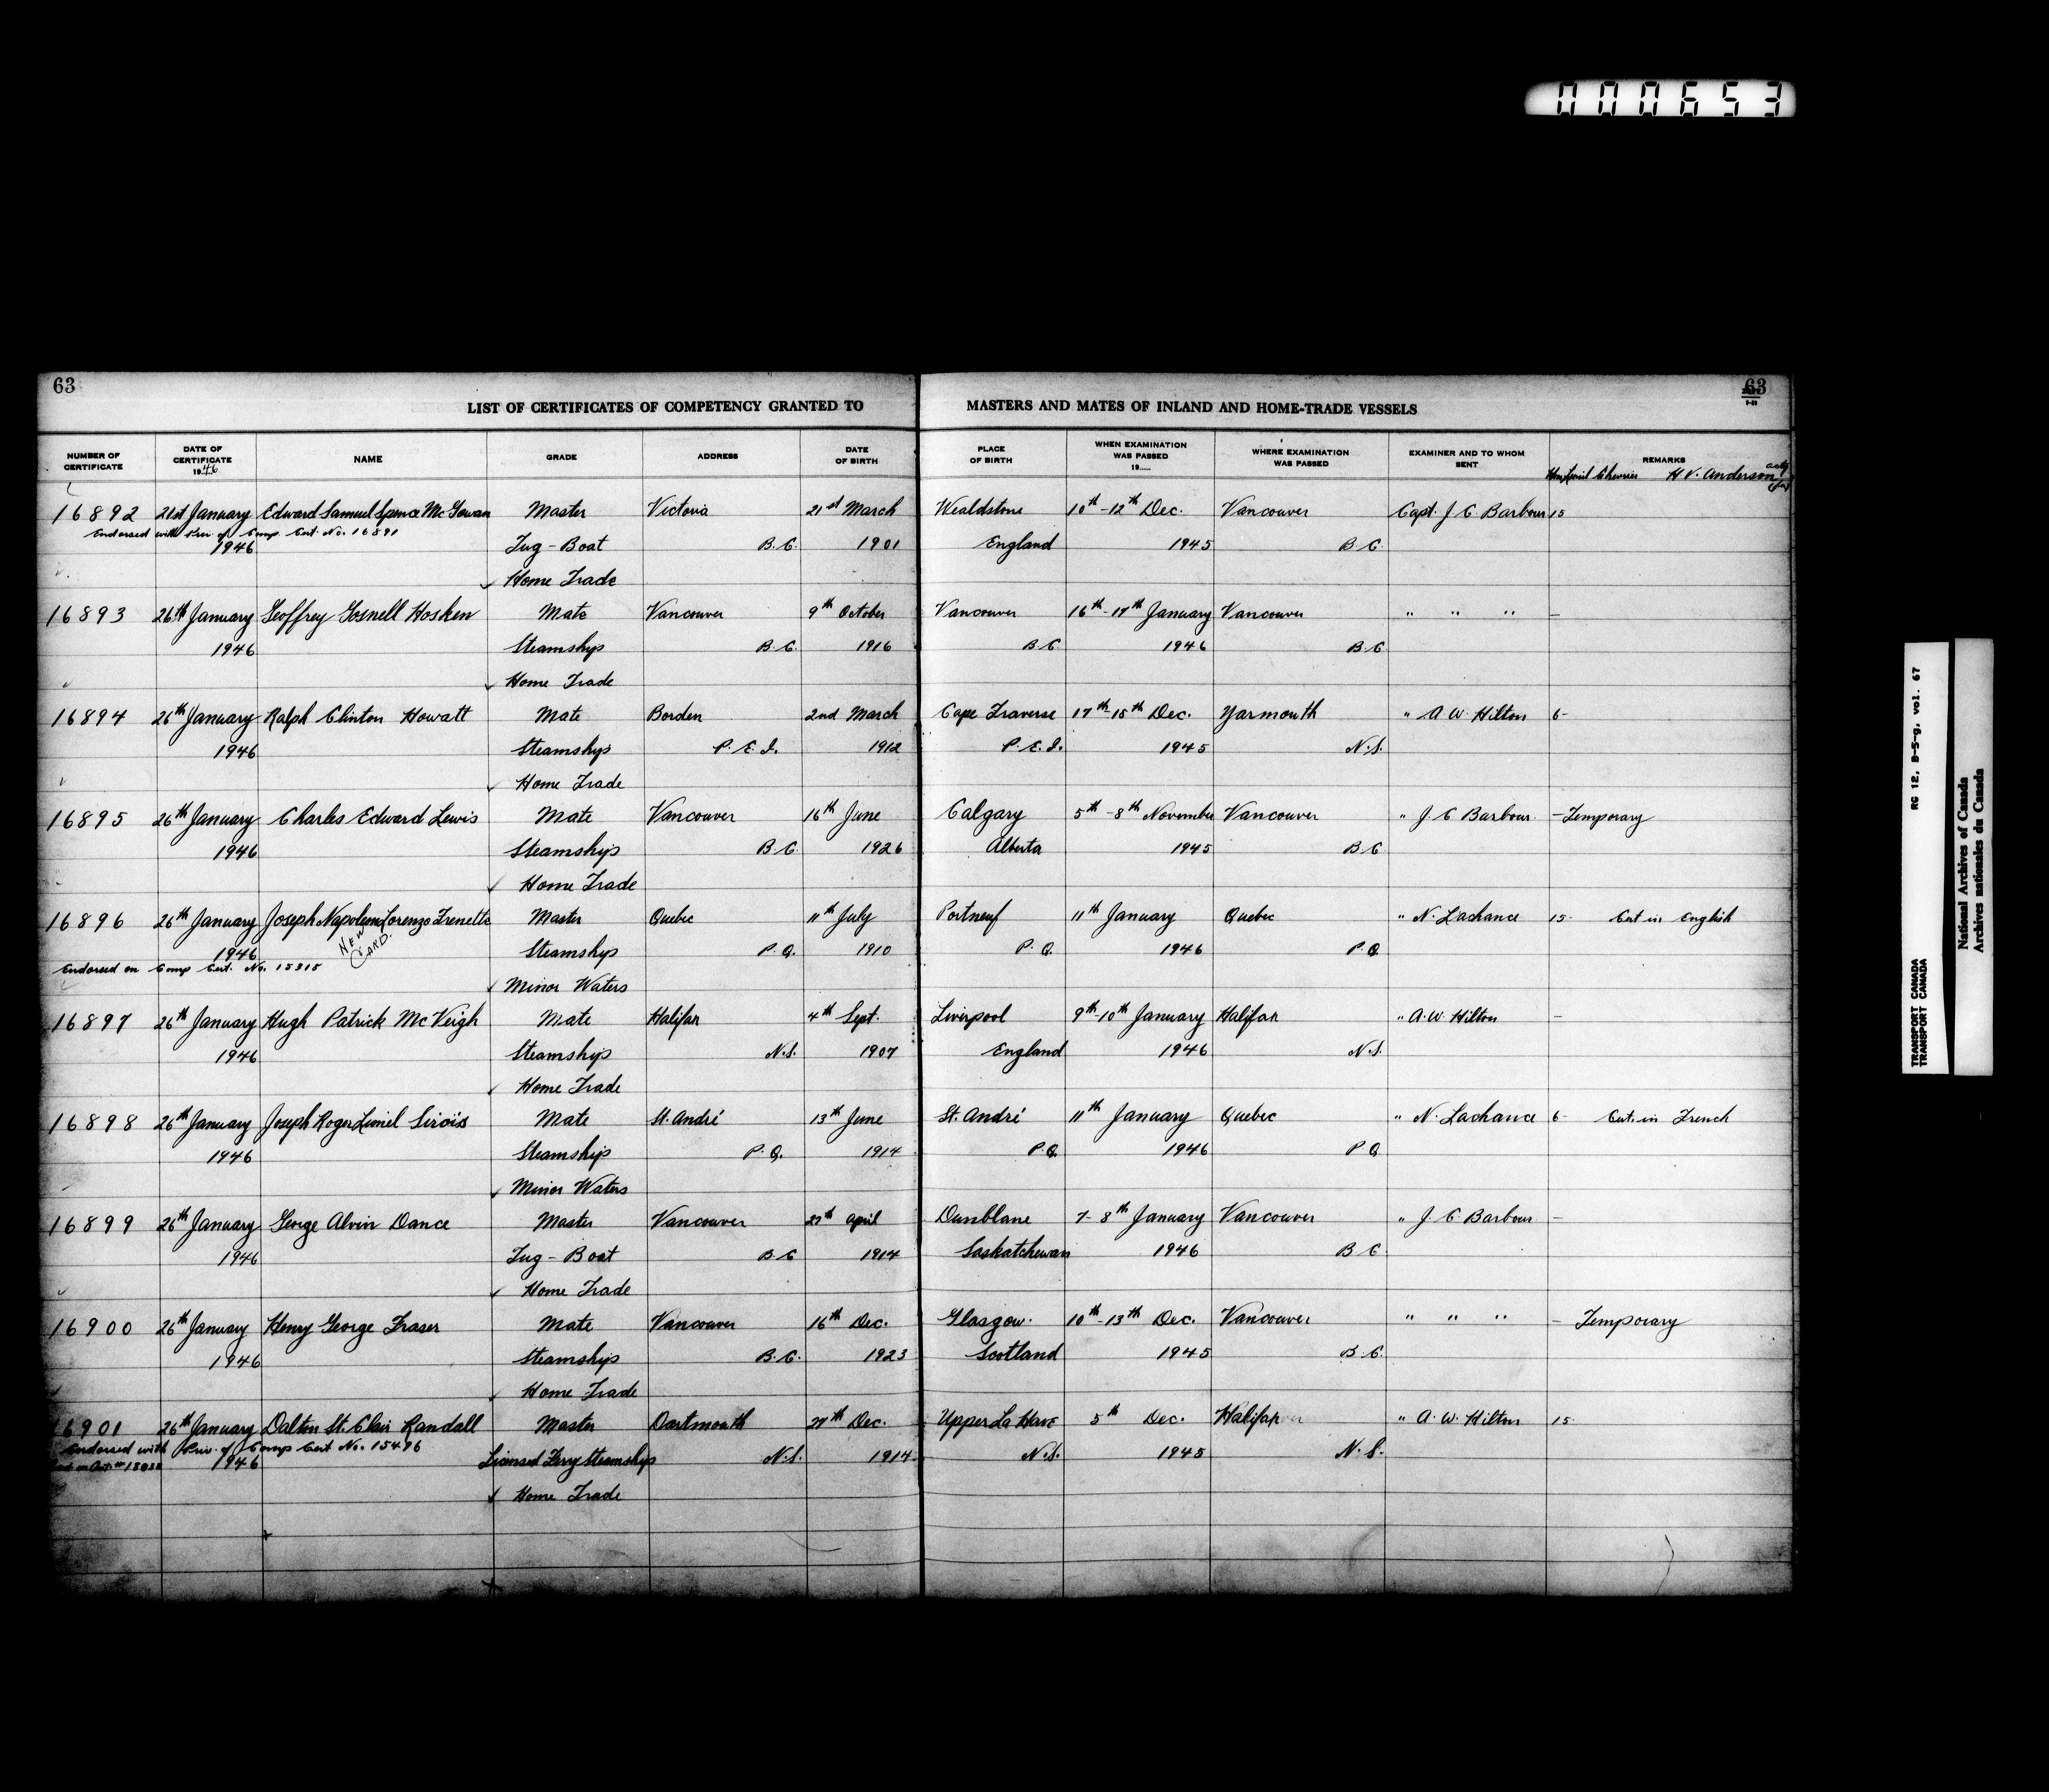 000653
63
63
LIST OF CERTIFICATES OF COMPETENCY GRANTED TO MASTERS AND MATES OF INLAND AND HOME-TRADE VESSELS
NUMBER OF CERTIFICATE DATE OF CERTIFICATE 1946 NAME GRADE ADDRESS DATE OF BIRTH PLACE OF BIRTH WHEN EXAMINATION WAS PASSED 19..... WHERE EXAMINATION WAS PASSED EXAMINER AND TO WHOM SENT REMARKS
Chevrier H V. Anderson
16892 21st January Edward Samuel Spence McGowan Master Victoria 21st March Wealdstone 10th-12th Dec. Vancouver Capt. J C Barbour 15
Endorsed with Prev. of Comp. Cert. No. 16891
1946 Tug-Boat B.C. 1901 England 1945 B C
Home Trade
16893 26th January Geoffrey Gosnell Hosken Mate Vancouver 9th October Vancouver 16th-17th January Vancouver " " " -
1946 Steamships B.C. 1916 B.C 1946 B.C
Home Trade
16894 26th January Ralph Clinton Howatt Mate Borden 2nd March Cape Traverse 17th-18th Dec. Yarmouth " A W. Hilton 6-
1946 Steamships P.E.I. 1912 P.E.I. 1945 N.S.
Home Trade
16895 26th January Charles Edward Lewis Mate Vancouver 16th June Calgary 5th-8th November Vancouver " J. C Barbour. - Temporary
1946 Steamships B.C. 1926 Alberta 1945 B C
Home Trade
16896 26th January Joseph Napoleon Lorenzo Frenette Master Quebec 11th July Portneuf 11th January Quebec " N. Lachance 15- Cert in English
NEW CARD.
1946 Steamships P.Q. 1910 P.Q. 1946 P.Q.
Endorsed on Comp Cert. No. 15315
Minor Waters
16897 26th January Hugh Patrick McVeigh Mate Halifax 4th Sept. Liverpool 9th-10th January Halifax " A.W. Hilton -
1946 Steamships N.S. 1907 England 1946 N.S.
Home Trade
16898 26th January Joseph Roger Lionel Sirois Mate St. André 13th June St. André 11th January Quebec " N. Lachance 6- Cert. in French
1946 Steamships P.Q. 1914 P.Q. 1946 P Q
Minor Waters
16899 26th January George Alvin Dance Master Vancouver 27th April Dunblane 7-8th January Vancouver " J. C Barbour -
1946 Tug-Boat B.C 1914 Saskatchewan 1946 B C
Home Trade
16900 26th January Henry George Fraser Mate Vancouver 16th Dec. Glasgow. 10th-13th Dec. Vancouver " " " - Temporary
1946 Steamships B.C. 1923 Scotland 1945 B.C.
Home Trade
16901 26th January Dalton St. Clair Randall Master Dartmouth 27th Dec. Upper La Have 5th Dec. Halifax " A. W. Hilton 15.
Endorsed with Prev. of Comp Cert No. 15476
1946 Licensed Ferry Steamships N.S. 1914 N.S. 1945 N.S.
Home Trade
RG 12, B-5-g, vol. 67
TRANSPORT CANADA
TRANSPORT CANADA
National Archives of Canada
Archives nationales du Canada